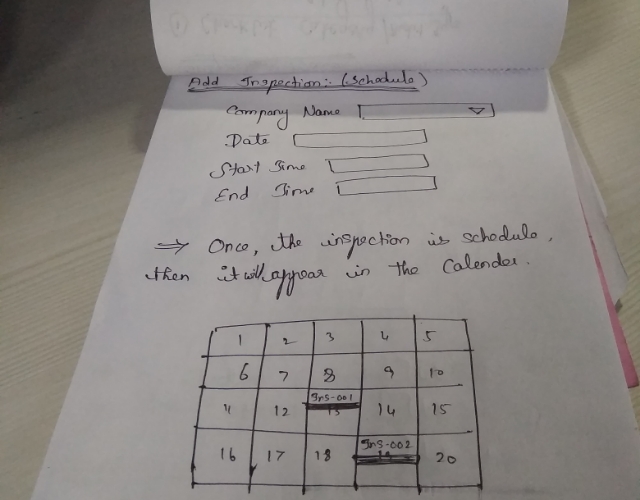 Add Inspection:- (Schedule)
Company Name
Date
Start Time
End Time
⇒ Once, the inspection is schedule,
then it will appear in the Calender.
1 2 3 4 5
6 7 8 9 10
11 12 Ins-001 13 14 15
16 17 18 Ins-002 19 20